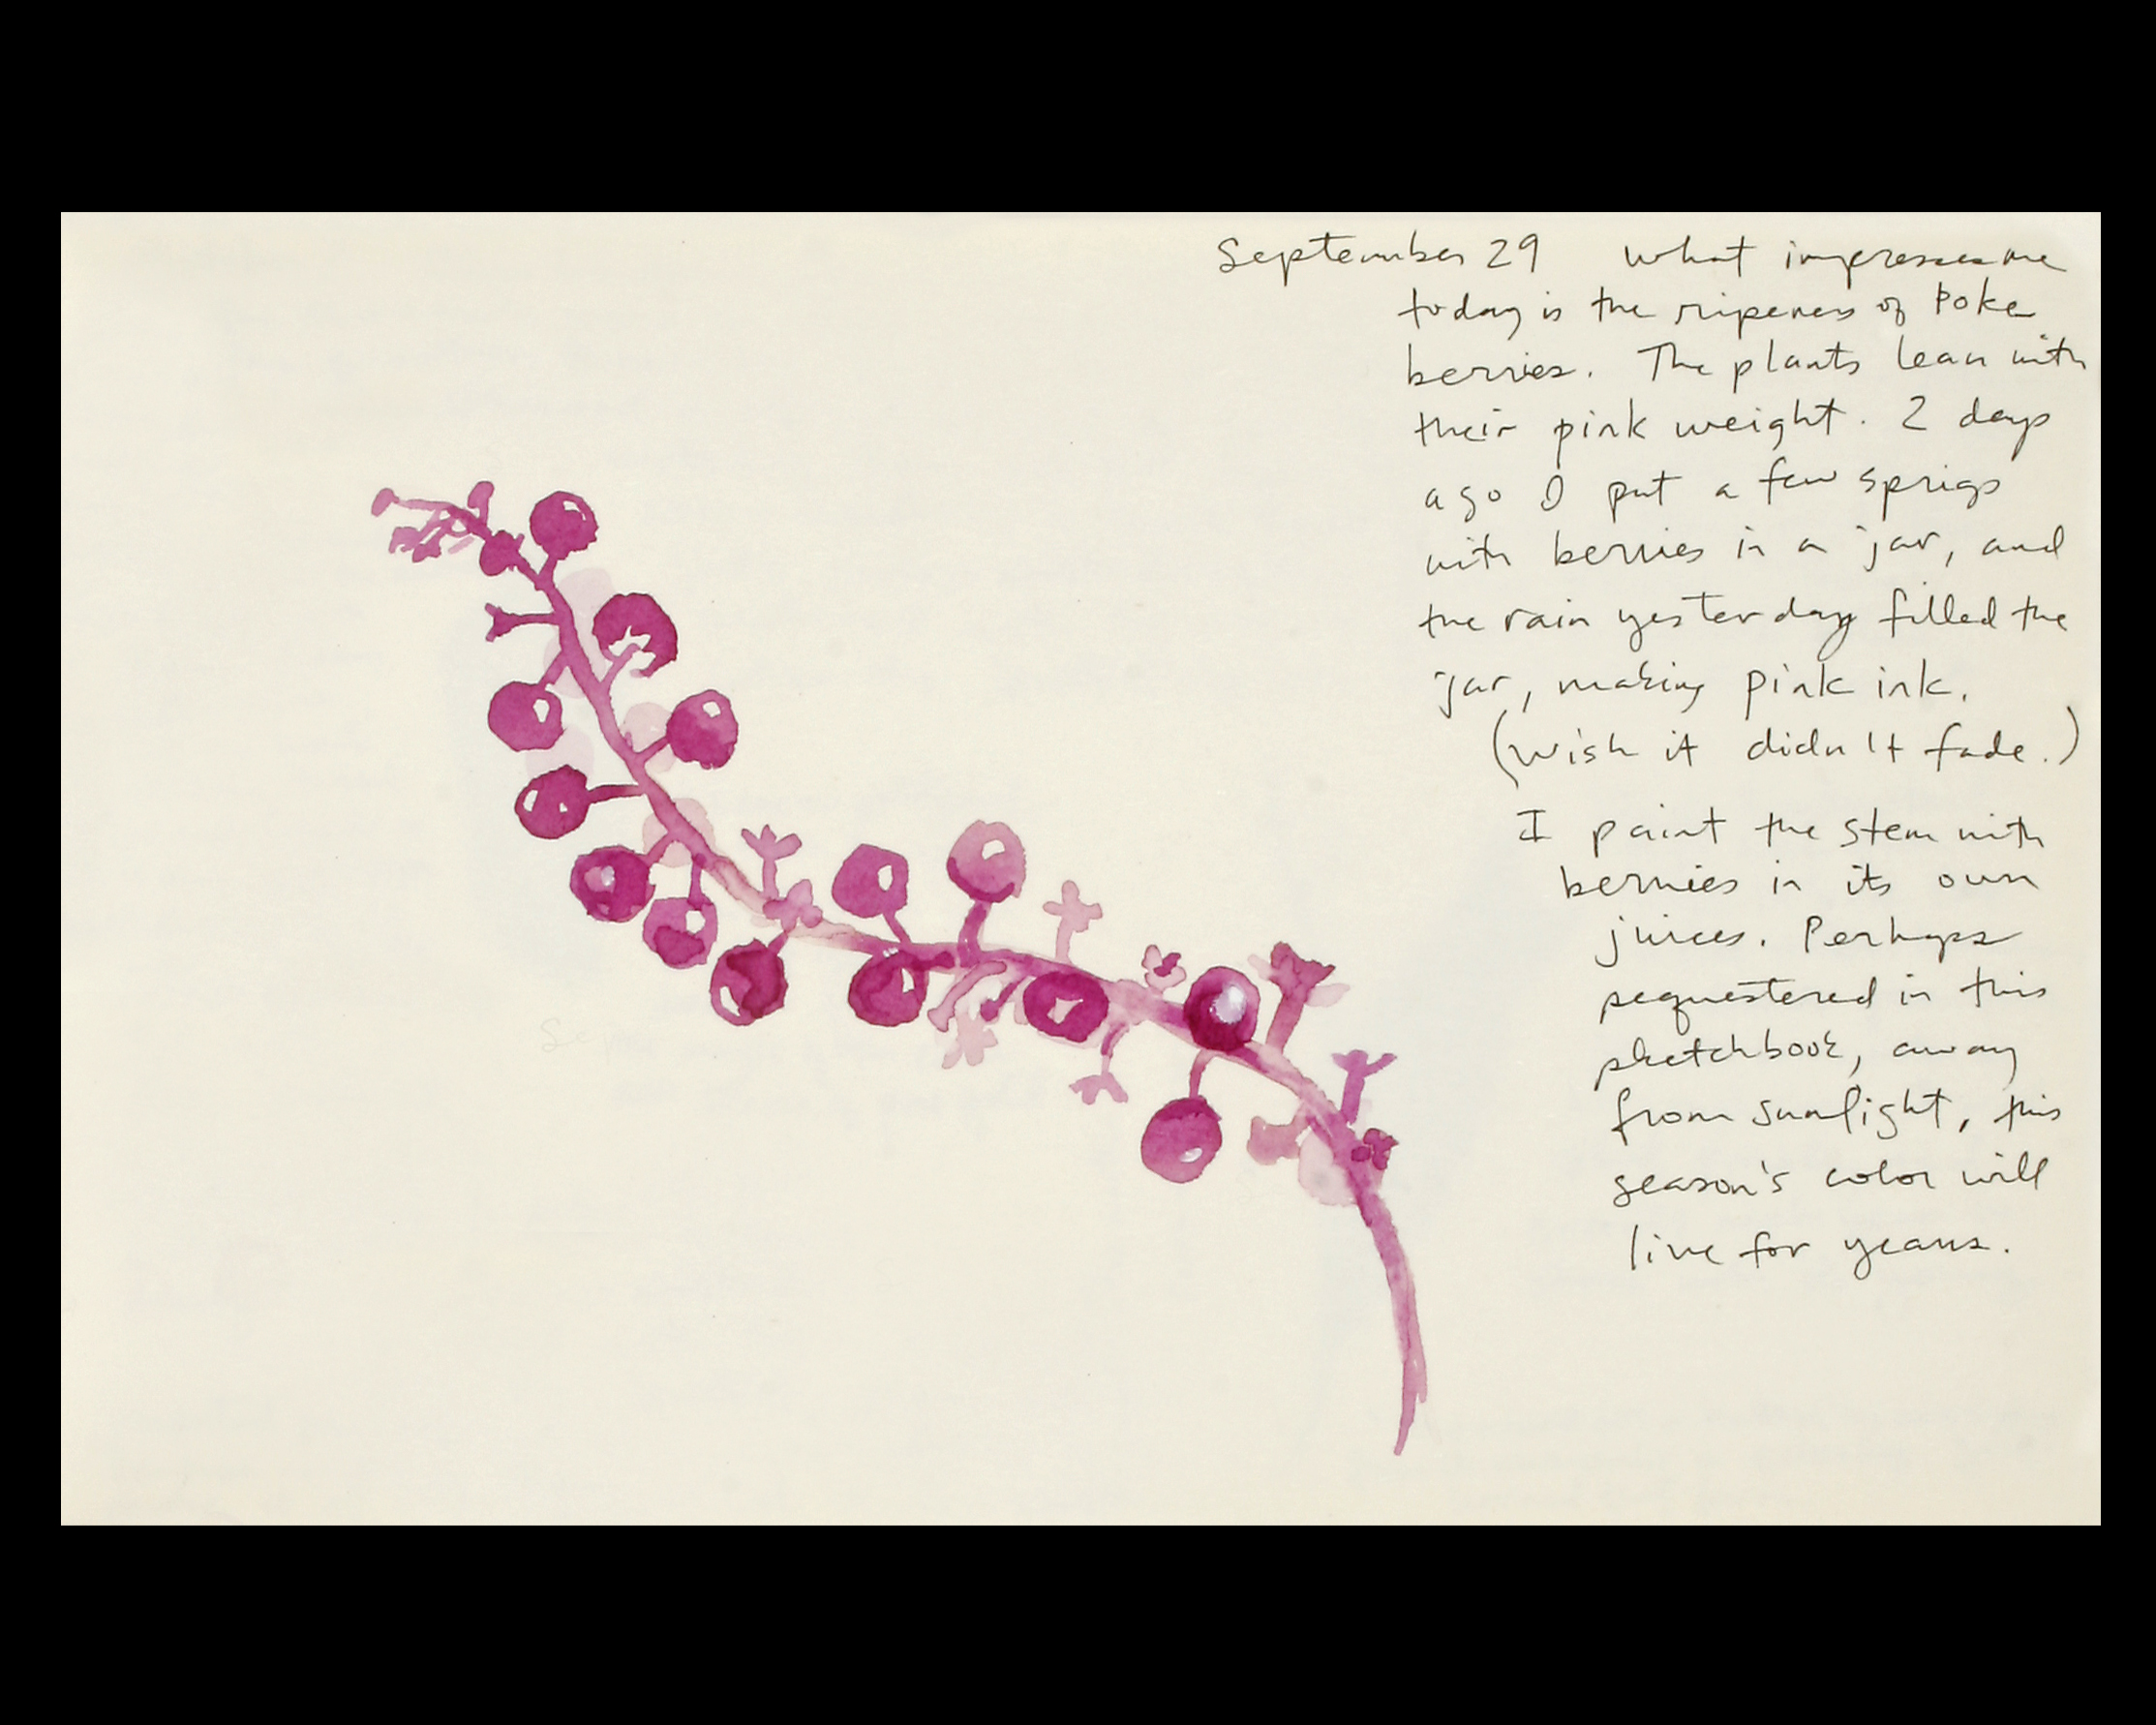 September 29 What impresses me
today is the ripeness of Poke
berries. The plants lean with
their pink weight. 2 days
ago I put a few sprigs
with berries in a jar, and
the rain yesterday filled the
jar, making pink ink.
(Wish it didn't fade.)
I paint the stem with
berries in its own
juices. Perhaps
sequestered in this
sketchbook, away
from sunlight, this
season's color will
live for years.